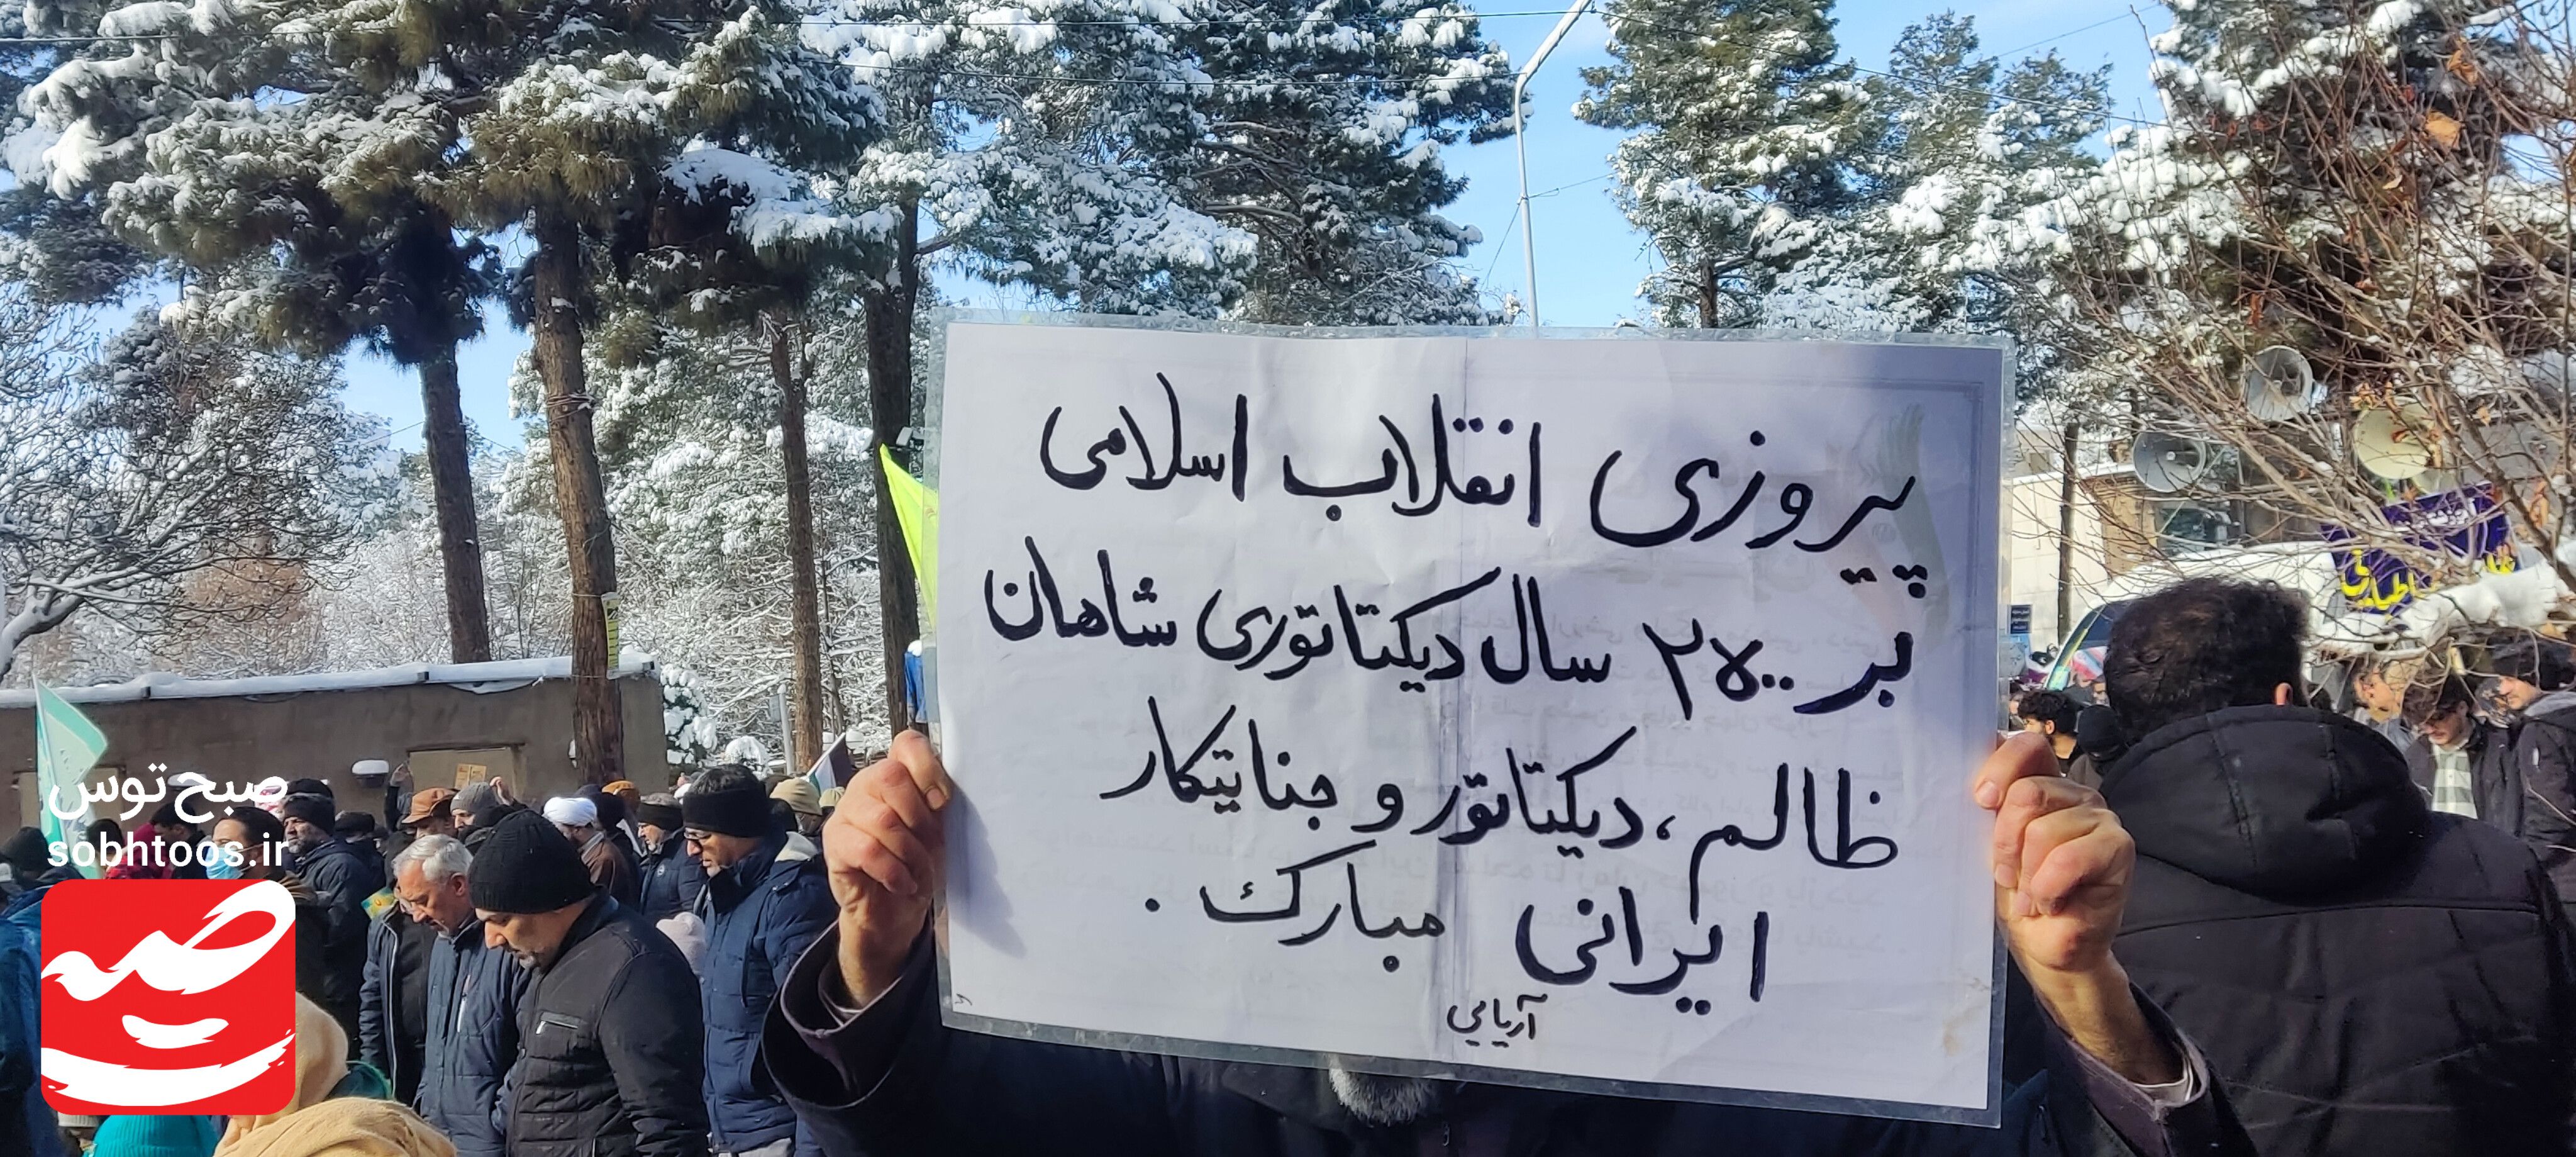 پیروزی انقلاب اسلامی
بر ۲۵۰۰ سال دیکتاتوری شاهان
ظالم، دیکتاتور و جنایتکار
ایرانی مبارک.
آریایی
صبح توس
sobhtoos.ir